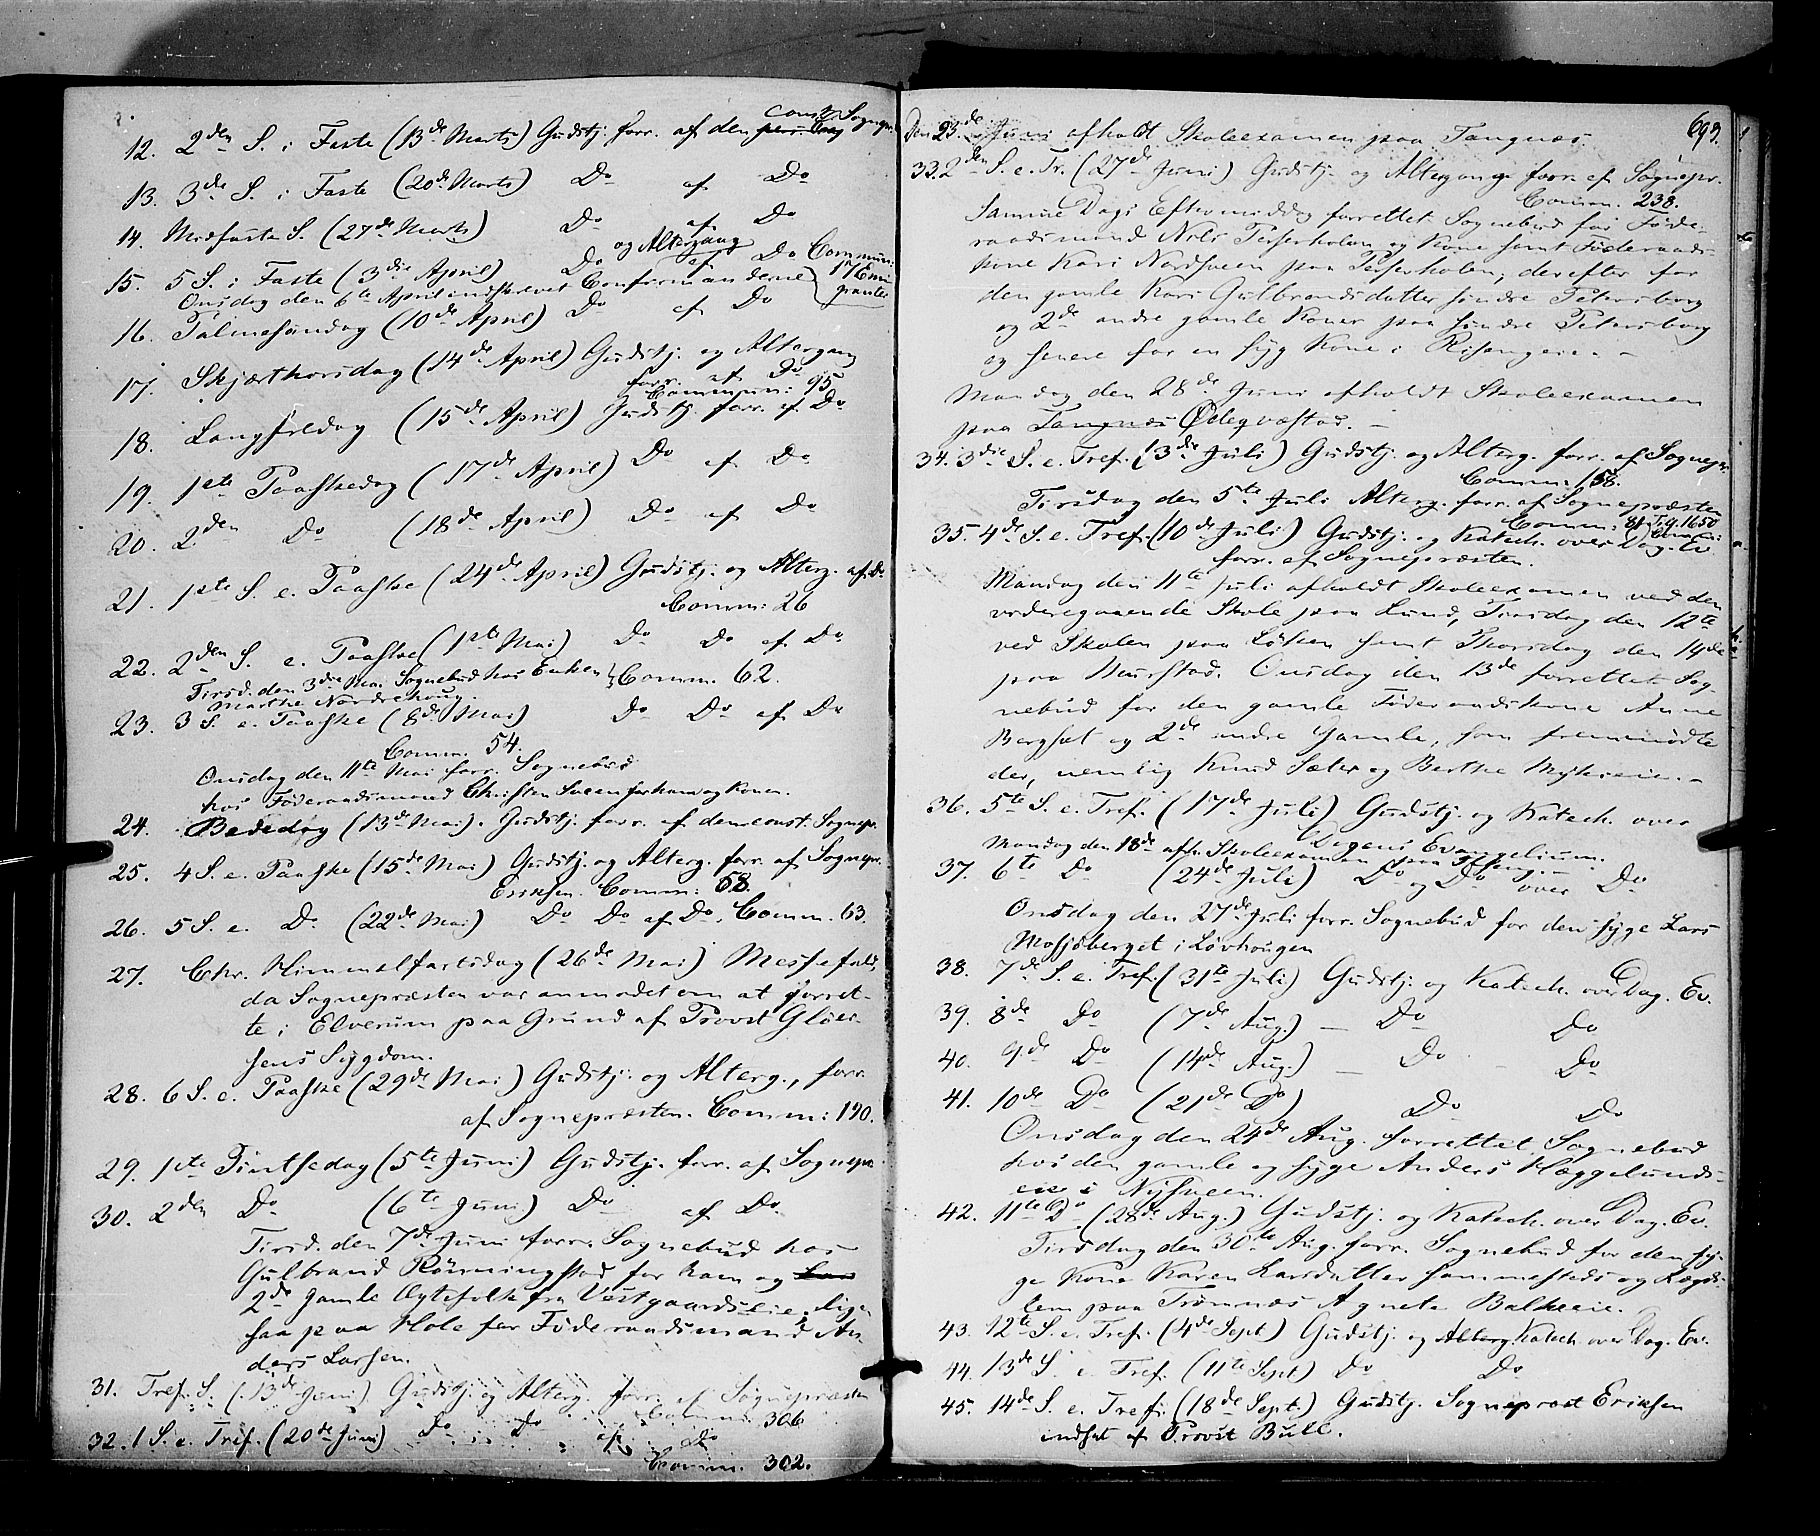 const. Sognepr.
12. 2den S. i Faste (13de Marts) Gudstj. forr. af den pers. Cap
13. 3de S. i Faste (20de Marts) Do af Do
14. Midfaste S. (27de Marts) Do af Do
og Altergang
15. 5 S. i Faste (3die April) Do af Do Commun:
Onsdag den 6te April indskrevet Confirmanderne 17 Emigranter
16. Palmesøndag (10de April) Do af Do
17. Skjærthorsdag (14de April) Gudstj. og Altergang
forr. af Do
Commun: 95
18. Langfredag (15de April) Gudstj. forr. af Do
19. 1ste Paaskedag (17de April) Do af Do
20. 2den Do (18de April) Do af Do
21. 1ste S. e. Paaske (24de April) Gudstj. og Alterg. af Do
Comm: 26
22. 2den S. e. Paaske (1ste Mai) Do Do af Do
Tirsd. den 3die Mai Sognebud hos Enken Comm. 62.
Marthe Nordrehoug.
23. 3 S. e. Paaske (8de Mai) Do Do af Do
Comm. 54.
Onsdag den 11te Mai forr. Sognebud
hos Føderaadsmand Christen Sveen for ham og Konen.
24. Bededag (13de Mai). Gudstj. forr. af den const. Sognepr.
25. 4 S. e. Paaske (15de Mai) Gudstj. og Alterg. forr. af Sognepr.
Eriksen. Comm: 58.
26. 5 S. e. Do (22de Mai) Do Do af Do. Comm. 63.
27. Chr. Himmelfartsdag (26de Mai) Messefald,
da Sognepræsten var anmodet om at forret-
te i Elverum paa Grund af Provst Gløer-
sens Sygdom.
28. 6 S. e. Paaske (29de Mai) Gudstj. og Alterg., forr.
af Sognepræsten. Comm: 190.
29. 1ste Pintsedag (5te Juni) Gudstj. forr. af Sognepr.
30. 2den Do (6te Juni) Do af Do.
Tirsd. den 7de Juni forr. Sognebud hos
Gulbrand Rønningstad for ham og
2de gamle Ægtefolk fra Vestgaardseie. Lige
saa paa Hole for Føderaadsmand An-
ders Larsen.
31. Tref. S. (13de Juni) Gudstj. og Alterg. forr. af Sognepræsten
Comm. 306
32. 1 S. e. Tref. (20de Juni) Do Do af Do
Comm. 302.
693.
Den 23de Juni afholdt Skoleexamen paa Tangnæs.
33. 2den S. e. Tr. (27de Juni) Gudstj. og Altergang forr. af Sognepr.
Comm. 238.
Samme Dags Eftermiddag forrettet Sognebud for Føde-
raadsmand Nils Perserholen og Kone samt Føderaads-
kone Kari Nordsveen paa Perserholen; derefter for
den gamle Kari Gulbrandsdatter søndre Petersborg
og 2de andre gamle Koner paa søndre Petersborg
og senere for en syg Kone i Risengeie. -
Mandag den 28de Juni afholdt Skoleexamen
paa Tangnæs Ødeqvæstad. -
34. 3die S. e. Tref. (3die Juli) Gudstj. og Alterg. forr. af Sognepr.
Comm: 158.
Tirsdag den 5te Juli Alterg. forr. af Sognepræsten
Comm: 81.
35. 4de S. e. Tref. (10de Juli) Gudstj. og Katech. over Dag. Ev
forr. af Sognepræsten.
Mandag den 11te Juli afholdt Skoleexamen ved den
videregaaende Skole paa Lund, Tirsdag den 12te
ved Skolen paa Løken samt Thorsdag den 14de
paa Naustad. Onsdag den 13de forrettet Sog-
nebud for den gamle Føderaadskone Anne
Bergset og 2de andre Gamle, som fremmødte
der, nemlig Knud Sæter og Berthe Myhreeie. -
36. 5te S. e. Tref. (17de Juli) Gudstj. og Katech. over
Dagens Evangelium.
Mandag den 18de afh. Skoleexamen paa
37. 6te Do (24de Juli) Do og Do over Do
Onsdag den 27de Juli forr. Sognebud for den syge Lars
Mosjøberget i Løvhougen
38. 7de S. e. Tref. (31te Juli) Gudstj. og Katech. over Dag. Ev.
39. 8de Do (7de Aug.) — Do Do
40. 9de Do (14de Aug.) — Do - Do
41. 10de Do (21de Do) Do Do
Onsdag den 24de Aug. forrettet Sognebud
hos den gamle og syge Anders Hæggelunds-
eie i Nysveen.
42. 11te Do (28de Aug.) Gudstj. og Katech. over Dag. Ev.
Tirsdag den 30te Aug. forr. Sognebud for den sy-
ge Kone Karen Larsdatter sammesteds og Lægds-
lem paa Trømnæs Agnete Balkeeie.
43. 12te S. e. Tref. (4de Sept.) Gudstj. og Alterg. Katech. over Dag. Ev.
44. 13de S. e. Tref. (11te Sept) Do Do
45. 14de S. e. Tref. (18de Sept.) Gudstj. Sogneprest Eriksen
indsat af Provst Bull.